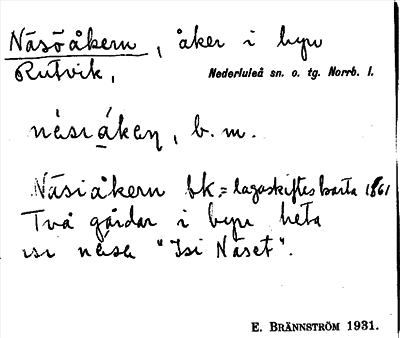 Näsöåkern, åker i byn
Rutvik,
Nederluleå sn. o. tg. Norrb. l.
nèsıáken, b. m.
Näsiåkern bk = lagaskifteskarta 1861
Två gårdar i byn heta
ısı nèsa "Isi Näset".
E. BRÄNNSTRÖM 1931.